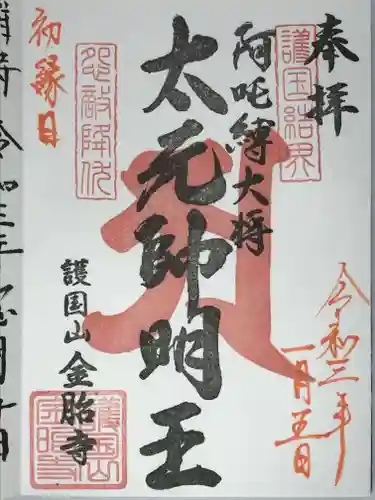 奉拝
護国結界
令和三年
一月五日
阿吒縛大将
太元帥明王
怨敵降伏
初縁日
護国山
金胎寺